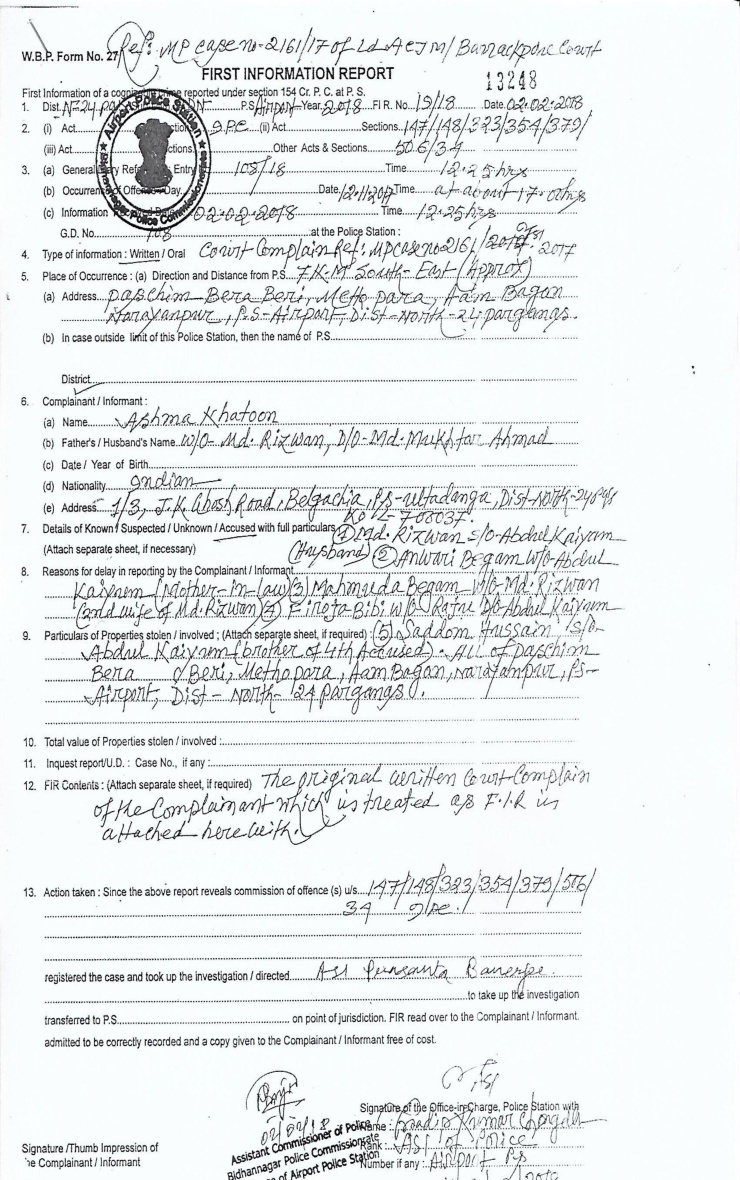 Ref: MP case no-2161/17 of Ld ACJM/ Barrackpore Court
W.B.P. Form No. 27
FIRST INFORMATION REPORT
13248
First Information of a cognizable crime reported under section 154 Cr. P. C. at P. S.
1. Dist. P.S. Airport Year 2018 FIR. No. 19/18 Date 02.02.2018
2. (i) Act IPC (ii) Act Sections 147/148/323/354/379/
(iii) Act Other Acts & Sections 506/34
3. (a) General Entry 108/18 Time 12.25 hrs
(b) Occurrence of Offence Day Date 12/11/2017 Time at about 17.00 hrs
(c) Information 02.02.2018 Time 12.25 hrs
G.D. No. 108 at the Police Station :
4. Type of information : Written / Oral Court Complain Ref: MP case no 2161/ 2017
5. Place of Occurrence : (a) Direction and Distance from P.S. 7 K.M South-East (Approx)
(a) Address Paschim Bera Beri, Metho para, Aam Bagan
Narayanpur, P.S-Airport, Dist-North-24 parganas.
(b) In case outside limit of this Police Station, then the name of P.S.
District
6. Complainant / Informant :
(a) Name Ashma Khatoon
(b) Father's / Husband's Name W/O- Md. Rizwan, D/O-Md. Mukhtar Ahmad
(c) Date / Year of Birth
(d) Nationality Indian
(e) Address 1/3, J.K Ghosh Road, Belgachia, P.s-Ultadanga, Dist-North-24 pgs
KOL-700037.
7. Details of Known / Suspected / Unknown / Accused with full particulars (1) Md. Rizwan S/O-Abdul Kaiyum
(Attach separate sheet, if necessary) (Husband) (2) Anwari Begam W/O-Abdul
8. Reasons for delay in reporting by the Complainant / Informant
Kaiyum (mother-in-law) (3) Mahmuda Begam W/O-Md. Rizwan
(2nd wife of Md. Rizwan) (4) Firoja Bibi W/O D/O-Abdul Kaiyum
9. Particulars of Properties stolen / involved ; (Attach separate sheet, if required) : (5) Saddom Hussain, S/O-
Abdul Kaiyum (brother of 4th Accused). All of paschim
Bera Beri, Methopara, Aam Bagan, Narayanpur, PS-
Airport, Dist- North- 24 parganas.
10. Total value of Properties stolen / involved :
11. Inquest report/U.D. : Case No., if any :
12. FIR Contents : (Attach separate sheet, if required) The original written Court Complain
of the Complainant which is treated as F.I.R is
attached herewith.
13. Action taken : Since the above report reveals commission of offence (s) u/s. 147/148/323/354/379/506/
34 IPC.
registered the case and took up the investigation / directed ASI Banerjee.
to take up the investigation
transferred to P.S. on point of jurisdiction. FIR read over to the Complainant / Informant.
admitted to be correctly recorded and a copy given to the Complainant / Informant free of cost.
Signature of the Office-in-Charge, Police Station with
Name : Kumar
Assistant Commissioner of Police
Rank : ASI of Police
Signature /Thumb Impression of
Bidhannagar Police Commissionerate
Number if any : Airport PS
the Complainant / Informant
of Airport Police Station